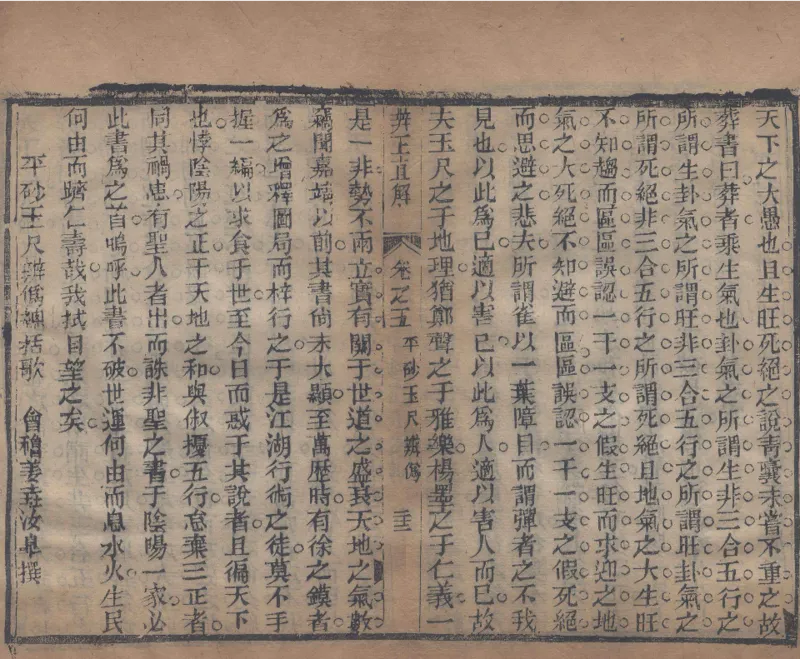 天下之大愚也且生旺死絕之說靑囊未嘗不重之故
葬書曰葬者乘生氣也卦氣之所謂生非三合五行之
所謂生卦氣之所謂旺非三合五行之所謂旺卦氣之
所謂死絕非三合五行之所謂死絕且地氣之大生旺
不知趨而區區誤認一干一支之假生旺而求迎之地
氣之大死絕不知避而區區誤認一干一支之假死絕
而思避之悲夫所謂雀以一葉障目而謂彈者之不我
見也以此爲已適以害已以此爲人適以害人而已故
夫玉尺之于地理猶鄭聲之于雅樂楊墨之于仁義一
辨正直解
卷之五
平砂玉尺辨僞
三十三
是一非勢不兩立實有關于世道之盛衰天地之氣數
竊聞嘉靖以前其書尚未大顯至萬歷時有徐之鏌者
爲之增釋圖局而梓行之于是江湖行術之徒莫不手
握一編以求食于世至今日而惑于其說者且徧天下
也悖陰陽之正干天地之和與俶擾五行怠棄三正者
同其禍患有聖人者出而誅非聖之書于陰陽一家必
此書爲之首嗚呼此書不破世運何由而息水火生民
何由而躋仁壽哉我拭目望之矣
平砂玉尺辨僞總括歌
會稽姜垚汝皐撰